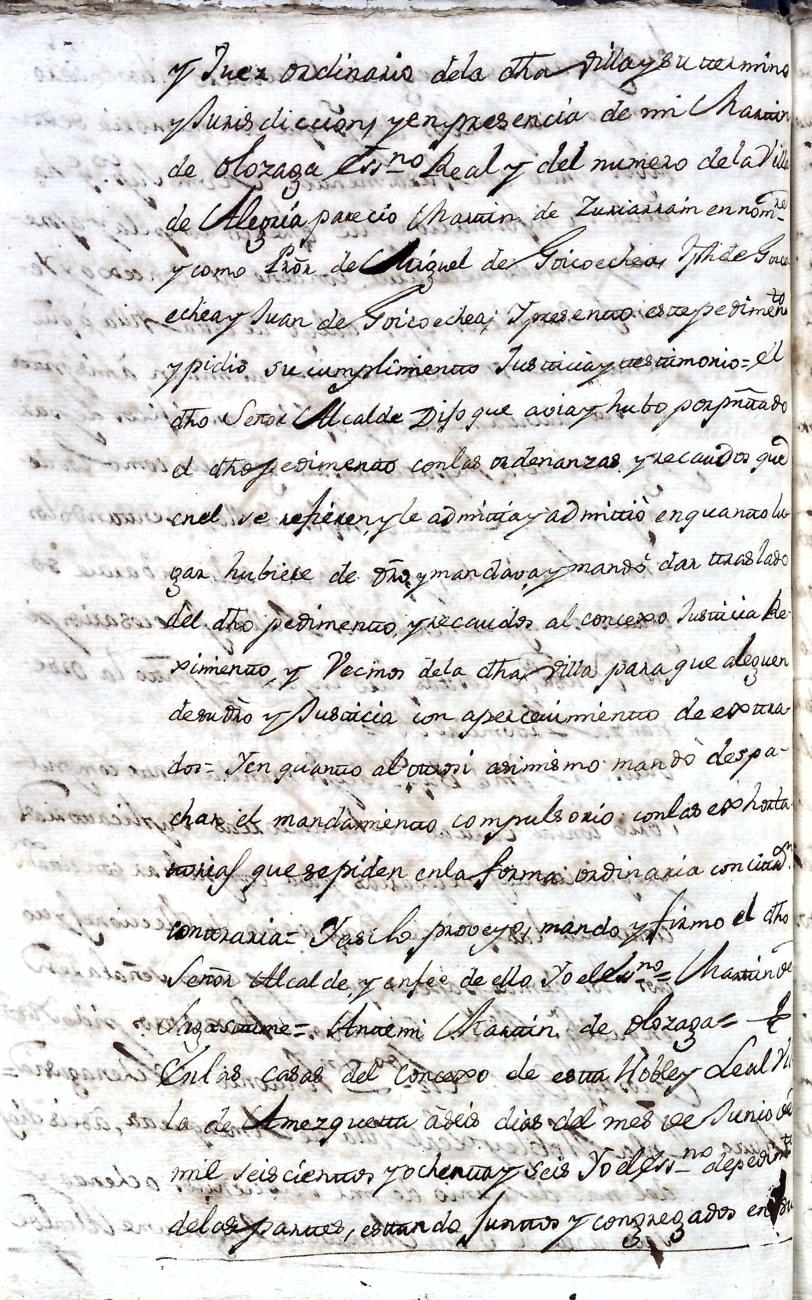 y Juez ordinario dela dha Villa y su termino
y Jurisdiccion, y en presencia de mi Martin
de Olozaga Essno Real y del numero dela Villa
de Alegria parecio Martin de Zuriarrain en nomre
y como Pror de Miguel de Goicoechea, Jph de Goico
echea y Juan de Goicoechea, Y presento este pedimento
y pidio su cumplimiento Justicia y testimonio= el
dho Señor Alcalde Dijo que avia y hubo por pntado
el dho pedimento conlas ordenanzas y recaudos que
enel se refieren, y le admitia y admittió en quanto lu
gar hubiere de dro, y mandava y mandó dar traslado
del dho pedimento, y recaudos al concexo Justicia Re-
ximiento, y Vecinos dela dha Villa para que aleguen
de su dro y Justicia con apercivimiento de extra-
dos= Y en quanto al otrosi asimismo mandò despa-
char el mandamiento compulsorio conlas exhorta
torias que se piden enla forma ordinaria con citaon
contraria= Y asi lo proveyo, mando y firmo el dho
Señor Alcalde, y enfee de ello Yo el Essno= Martin de
= Antemi Martin de Olozaga=
Enlas casas del Concexo de esta Noble y Leal Vi
la de Amezquetta à seis dias del mes de Junio de
mil seiscientos y ochenta y seis Yo el Essno de pedimto
delas partes, estando Juntos y congregados en su